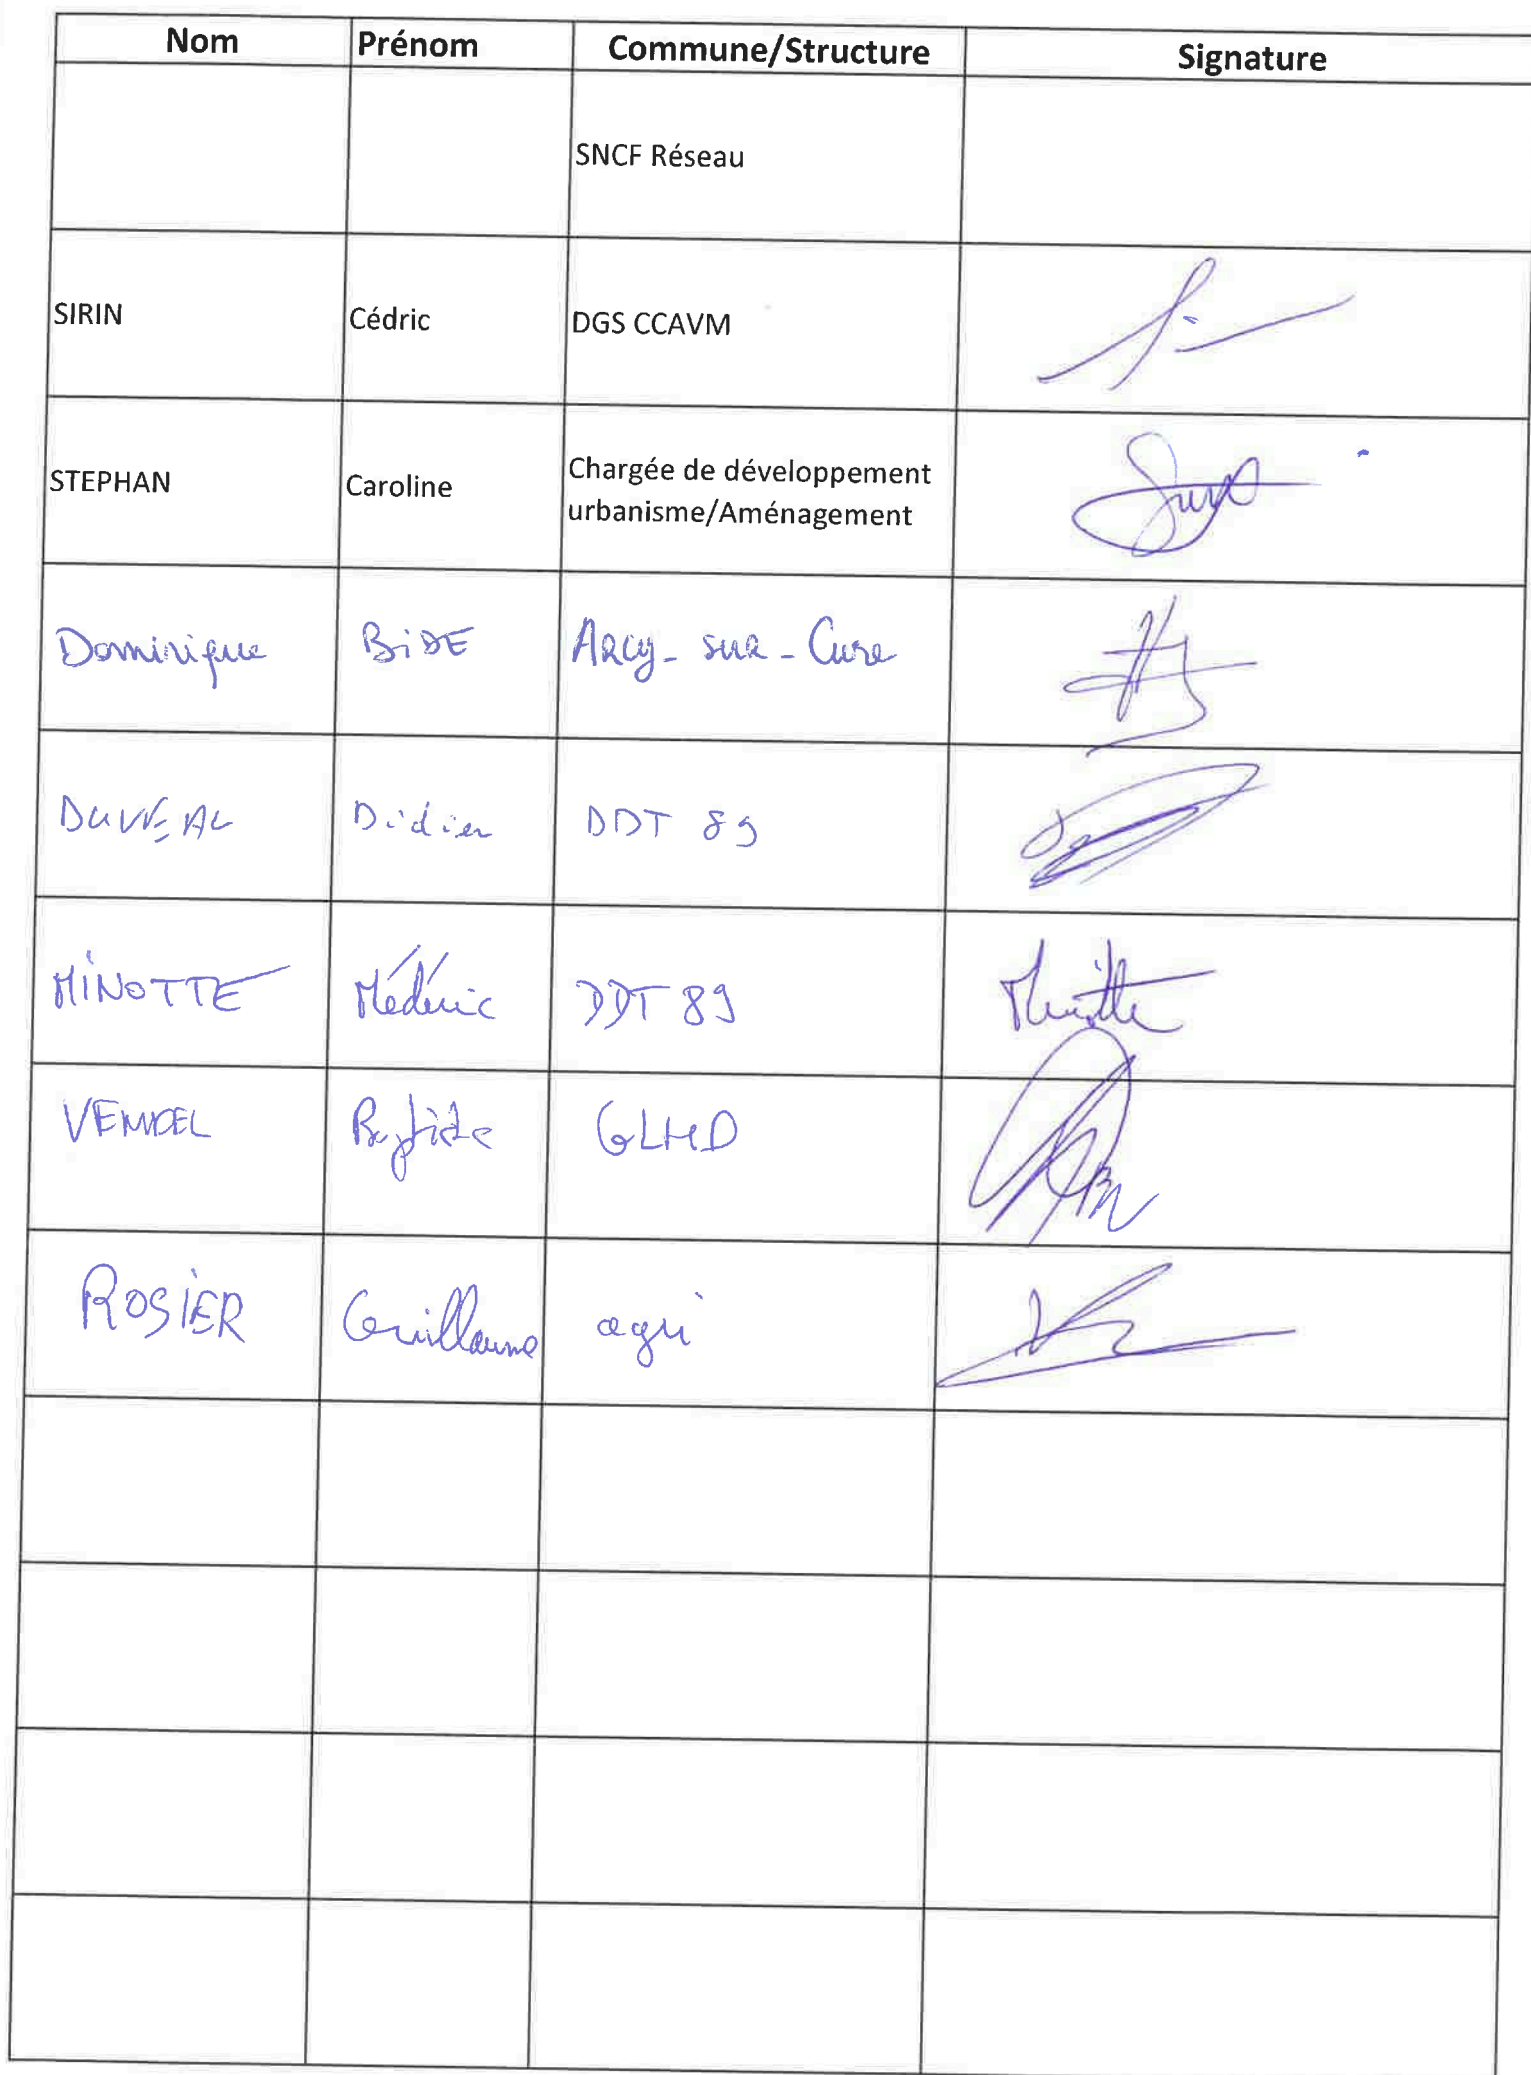 Nom Prénom Commune/Structure Signature
SNCF Réseau
SIRIN Cédric DGS CCAVM
STEPHAN Caroline Chargée de développement
urbanisme/Aménagement
Dominique BiDE ARcy-sur-Cure
Didier DDT 89
MiNOTTE Médéric DDT 89
Baptiste GLHD
ROSiER Guillaume agri